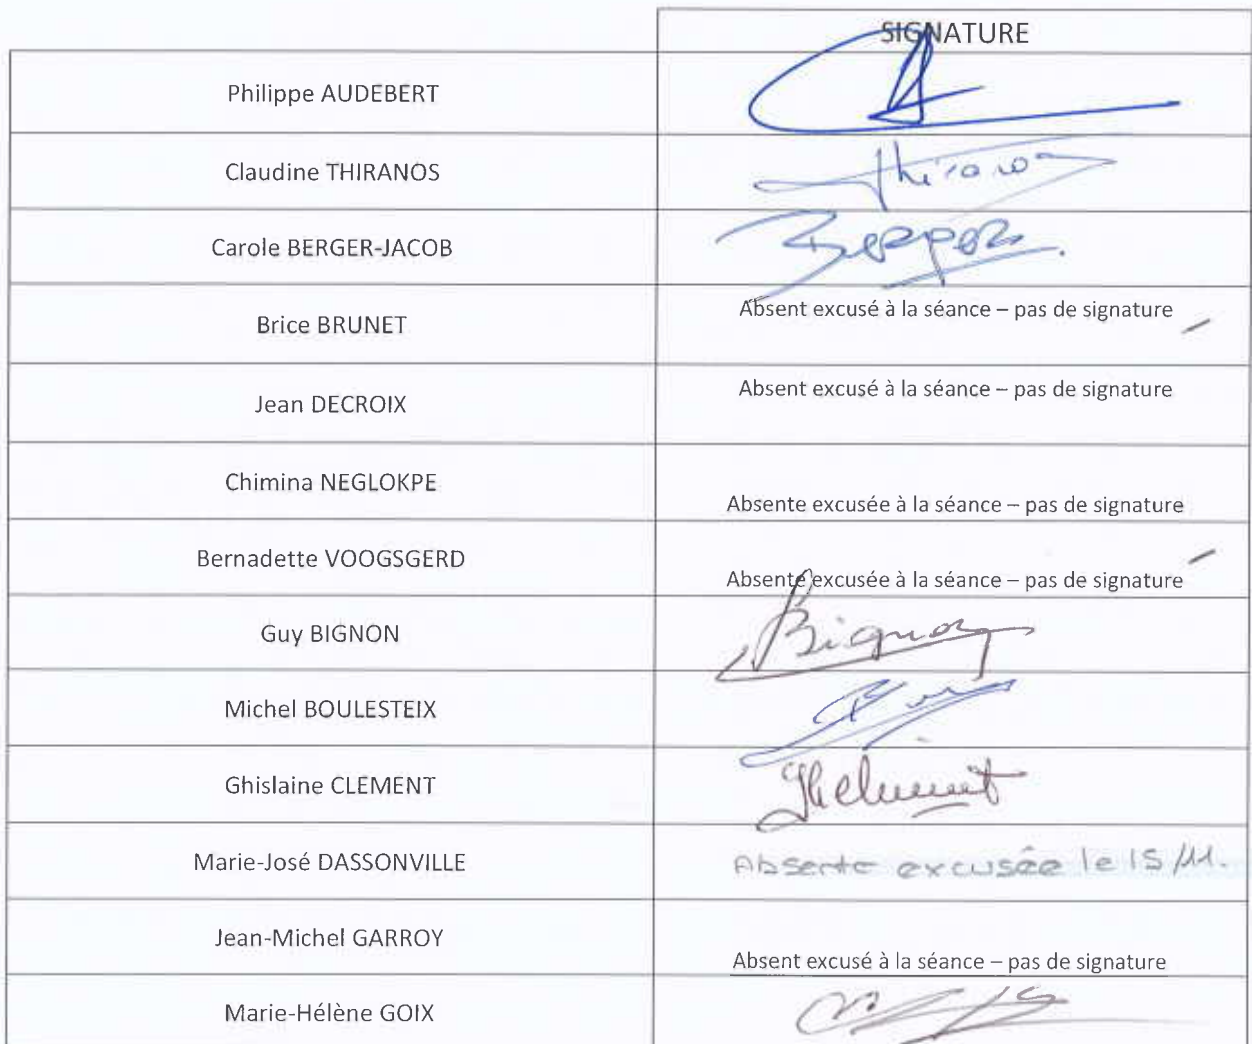 SIGNATURE
Philippe AUDEBERT
Claudine THIRANOS
Thiranos
Carole BERGER-JACOB
Berger
Brice BRUNET
Absent excusé à la séance – pas de signature
Jean DECROIX
Absent excusé à la séance – pas de signature
Chimina NEGLOKPE
Absente excusée à la séance – pas de signature
Bernadette VOOGSGERD
Absente excusée à la séance – pas de signature
Guy BIGNON
Bignon
Michel BOULESTEIX
Ghislaine CLEMENT
Marie-José DASSONVILLE
Absente excusée le 15/11.
Jean-Michel GARROY
Absent excusé à la séance – pas de signature
Marie-Hélène GOIX